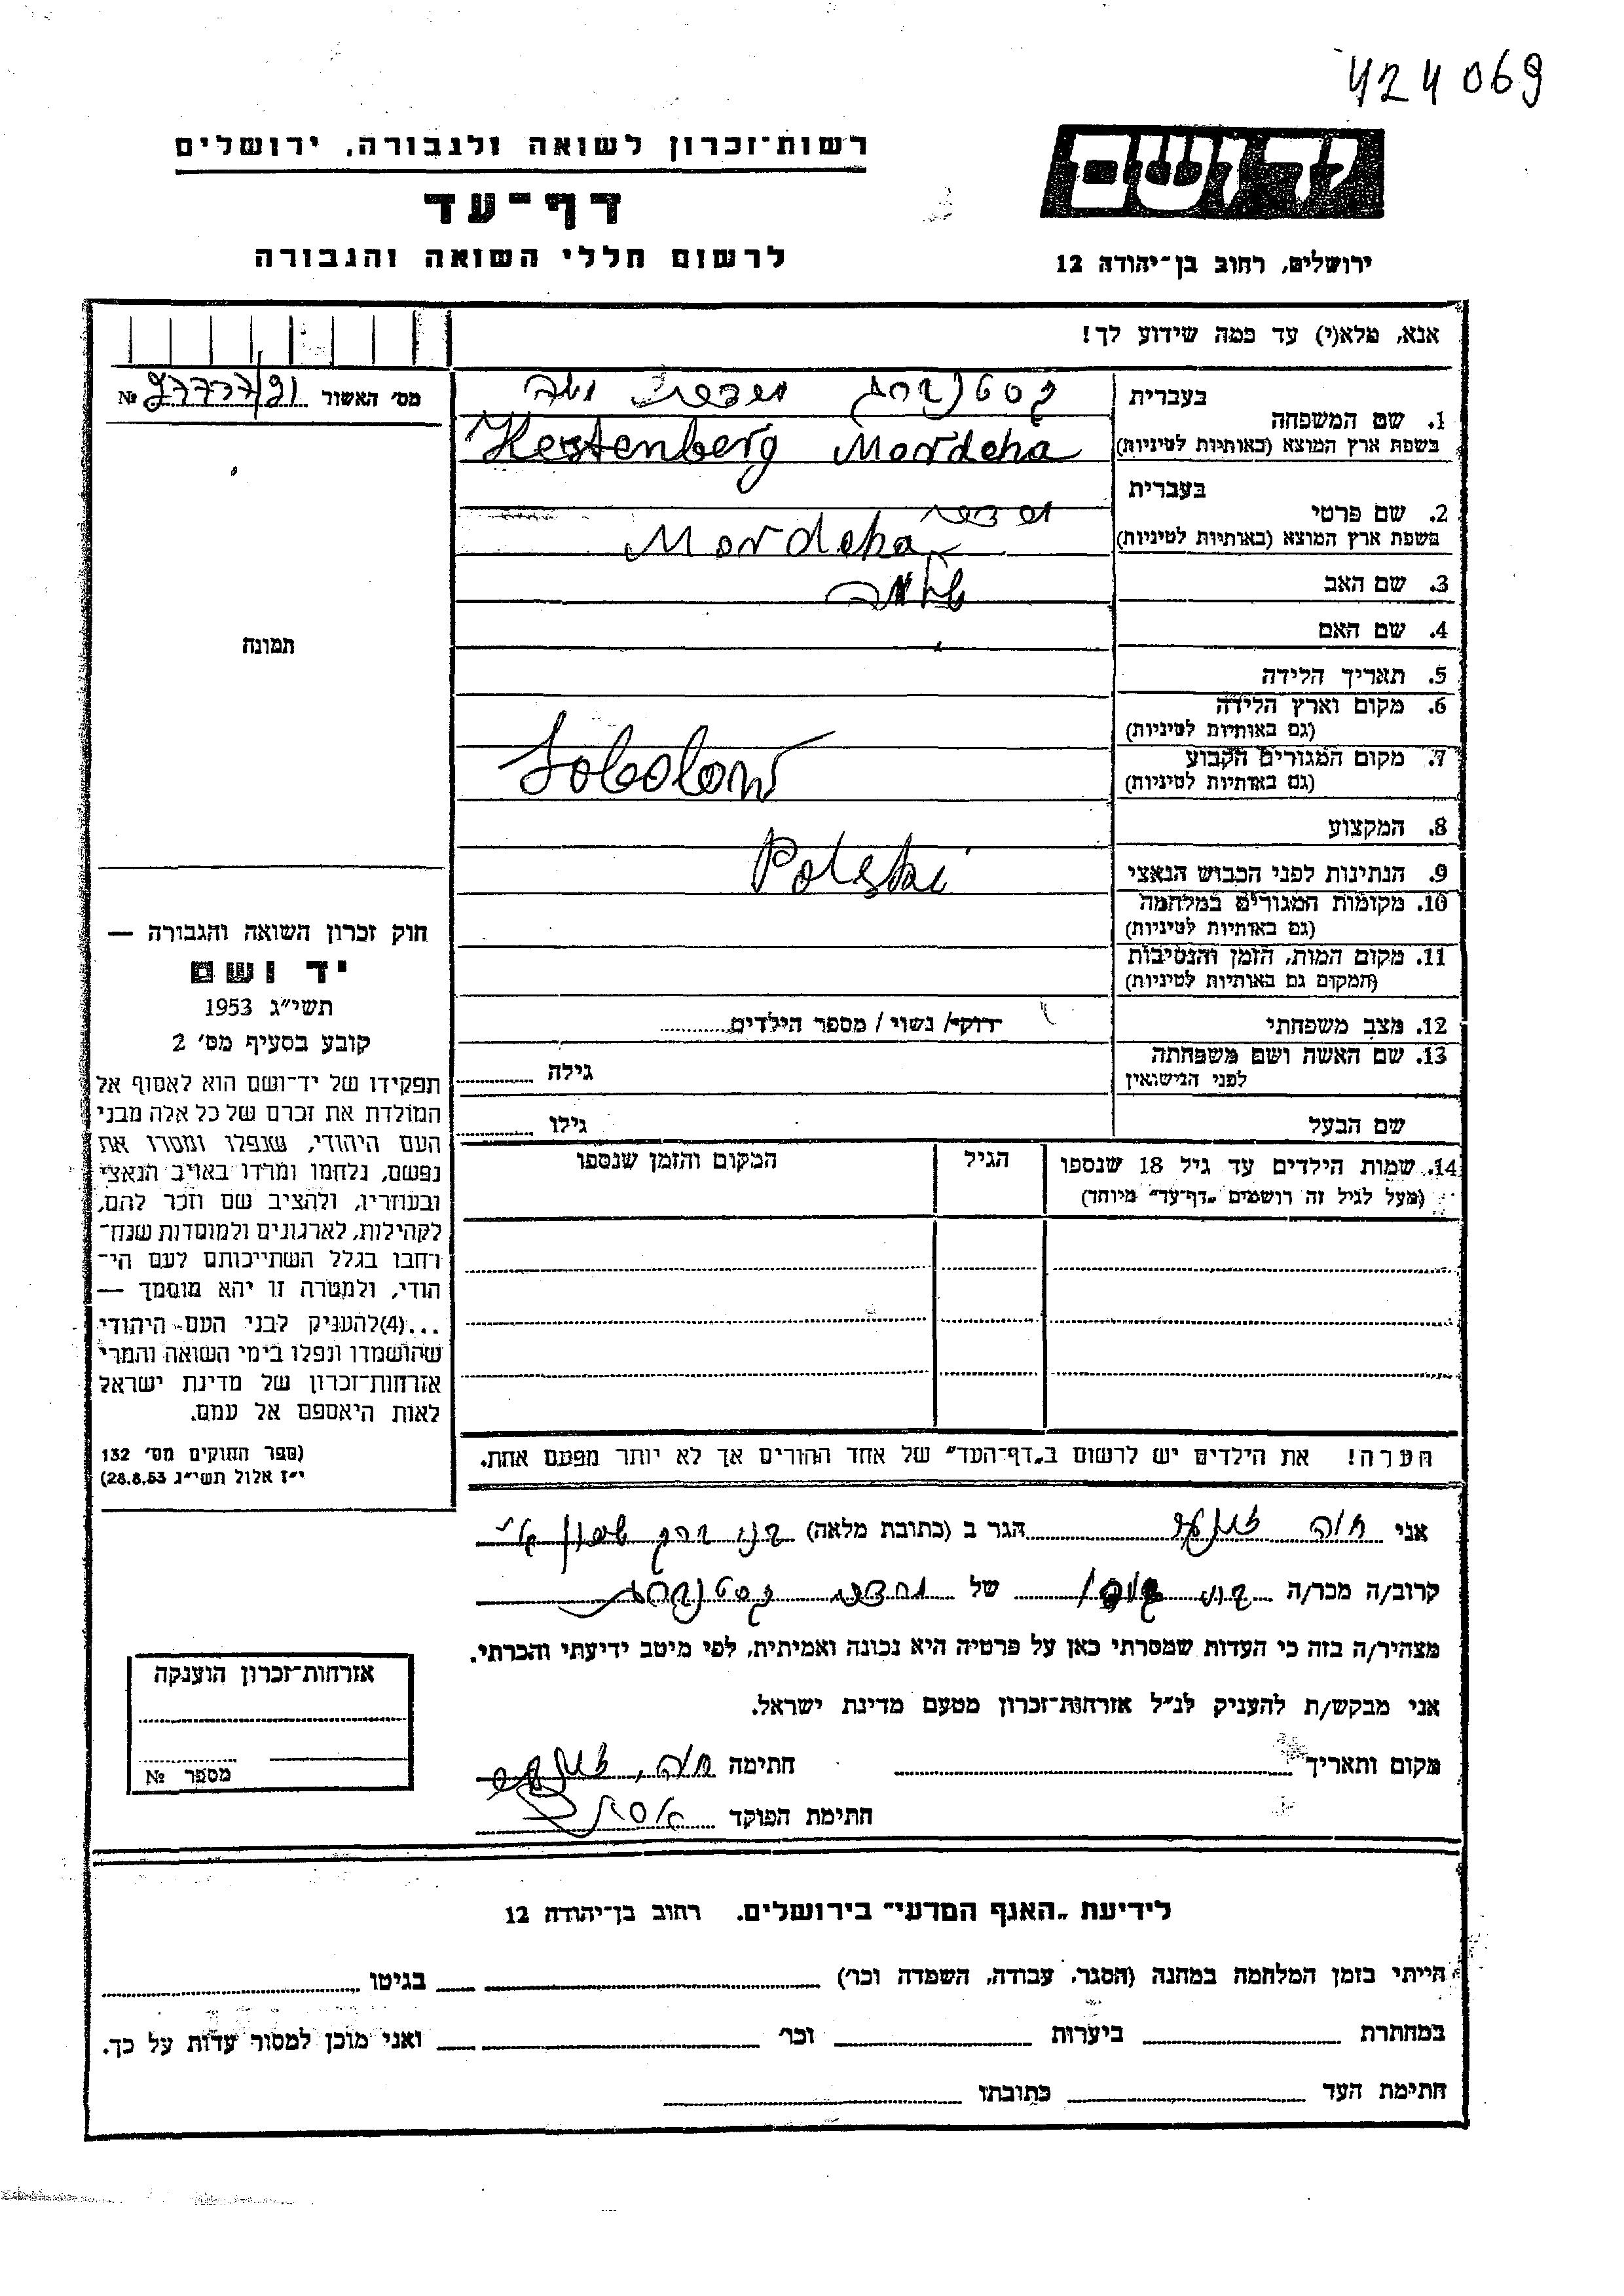 424069
רשות־זכרון לשואה ולגבורה, ירושלים
דף־עד
לרשום חללי השואה והגבורה
יד ושם
ירושלים, רחוב בן־יהודה 12
אנא, מלא(י) עד כמה שידוע לך!
מס׳ האשור № 97777/91
1. שם המשפחה
בעברית קסטנברג
בשפת ארץ המוצא (באותיות לטיניות) Kestenberg Mordcha
2. שם פרטי
בעברית
בשפת ארץ המוצא (באותיות לטיניות) Mordcha
3. שם האב שלמה
4. שם האם
5. תאריך הלידה
6. מקום וארץ הלידה
(גם באותיות לטיניות)
7. מקום המגורים הקבוע
(גם באותיות לטיניות)
8. המקצוע
9. הנתינות לפני הכבוש הנאצי Polski
10. מקומות המגורים במלחמה
(גם באותיות לטיניות)
11. מקום המות, הזמן והנסיבות
(המקום גם באותיות לטיניות)
12. מצב משפחתי רוק/ נשוי / מספר הילדים
13. שם האשה ושם משפחתה
לפני הנישואין
גילה
שם הבעל
גילו
14. שמות הילדים עד גיל 18 שנספו
(מעל לגיל זה רושמים „דף־עד״ מיוחד)
הגיל
המקום והזמן שנספו
הערה! את הילדים יש לרשום ב„דף־העד״ של אחד ההורים אך לא יותר מפעם אחת.
תמונה
חוק זכרון השואה והגבורה —
יד ושם
תשי״ג 1953
קובע בסעיף מס׳ 2
תפקידו של יד־ושם הוא לאסוף אל
המולדת את זכרם של כל אלה מבני
העם היהודי, שנפלו ומסרו את
נפשם, נלחמו ומרדו באויב הנאצי
ובעוזריו, ולהציב שם וזכר להם,
לקהילות, לארגונים ולמוסדות שנח־
רחבו בגלל השתייכותם לעם הי־
הודי, ולמטרה זו יהא מוסמך —
...(4)להעניק לבני העם היהודי
שהושמדו ונפלו בימי השואה והמרי
אזרחות־זכרון של מדינת ישראל
לאות היאספם אל עמם.
(ספר החוקים מס׳ 132
י״ז אלול תשי״ג 28.8.53)
אני חוה הגר ב (כתובת מלאה) בני ברק
קרוב/ה מכר/ה של קסטנברג
מצהיר/ה בזה כי העדות שמסרתי כאן על פרטיה היא נכונה ואמיתית, לפי מיטב ידיעתי והכרתי.
אני מבקש/ת להעניק לנ״ל אזרחות־זכרון מטעם מדינת ישראל.
מקום ותאריך חתימה חוה
חתימת הפוקד
אזרחות־זכרון הוענקה
מספר №
לידיעת „האגף המדעי״ בירושלים. רחוב בן־יהודה 12
הייתי בזמן המלחמה במחנה (הסגר, עבודה, השמדה וכו׳) בגיטו
במחתרת ביערות וכו׳ ואני מוכן למסור עדות על כך.
חתימת העד כתובתו